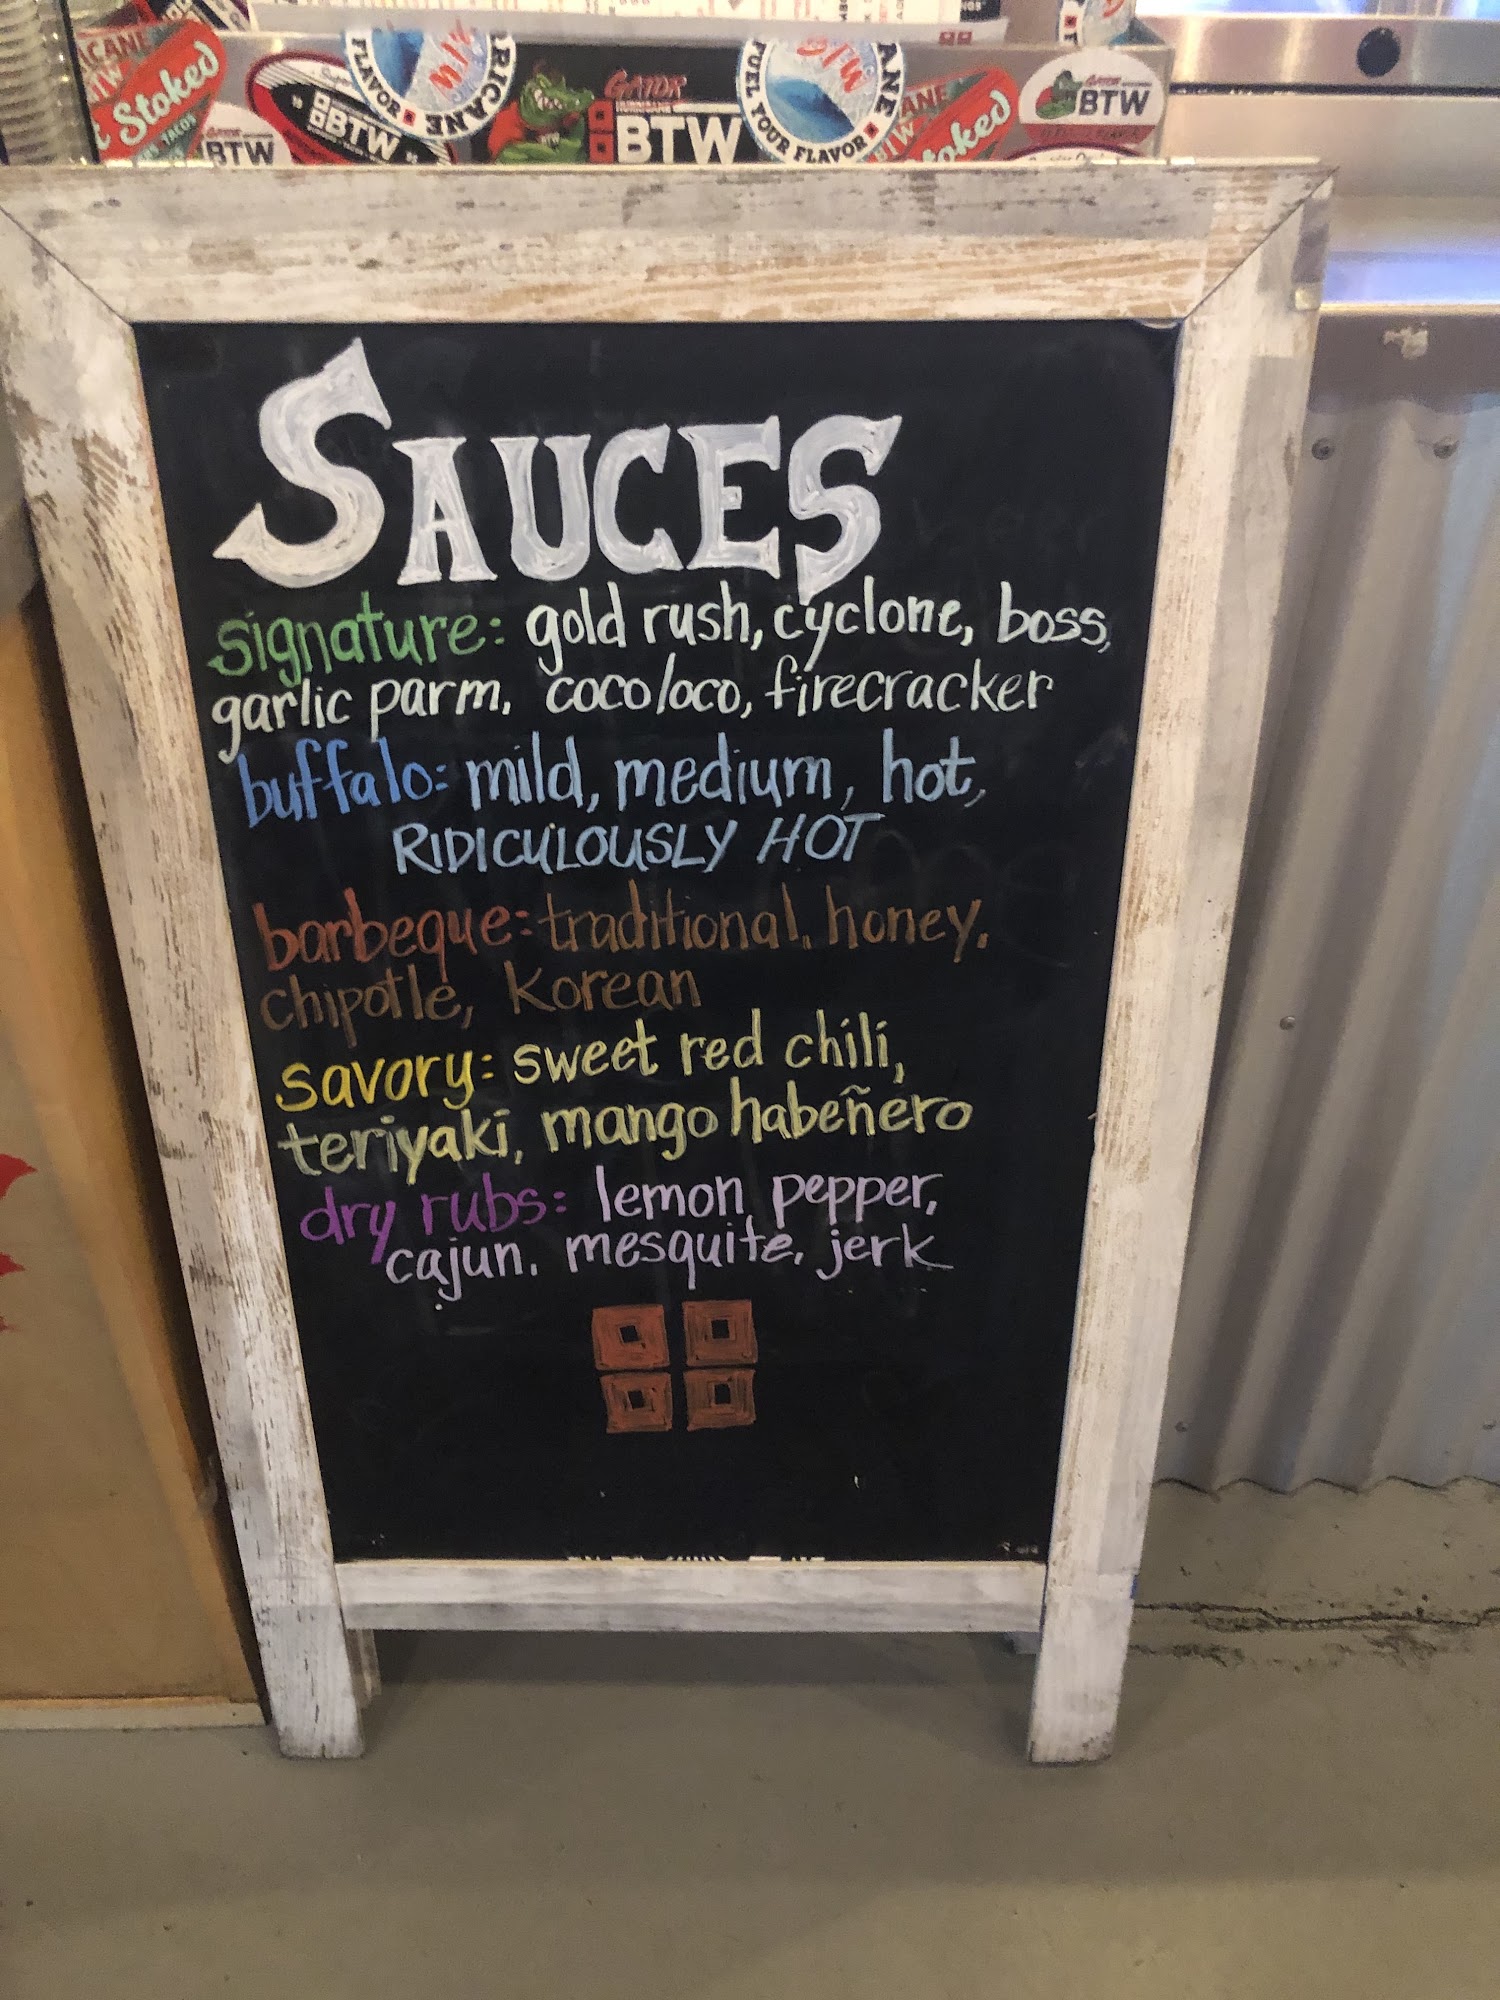 CANE
BTW
Stoked
TACOS
GATOR
BTW
BTW
FLAVOR
RRICANE
GATOR
BTW
FUEL YOUR FLAVOR
ANE
CANE
BTW
oked
GATOR
BTW
SAUCES
signature: gold rush, cyclone, boss,
garlic parm, coco loco, firecracker
buffalo: mild, medium, hot,
RIDICULOUSLY HOT
barbeque: traditional, honey,
chipotle, Korean
savory: sweet red chili,
teriyaki, mango habeñero
dry rubs: lemon pepper,
cajun, mesquite, jerk